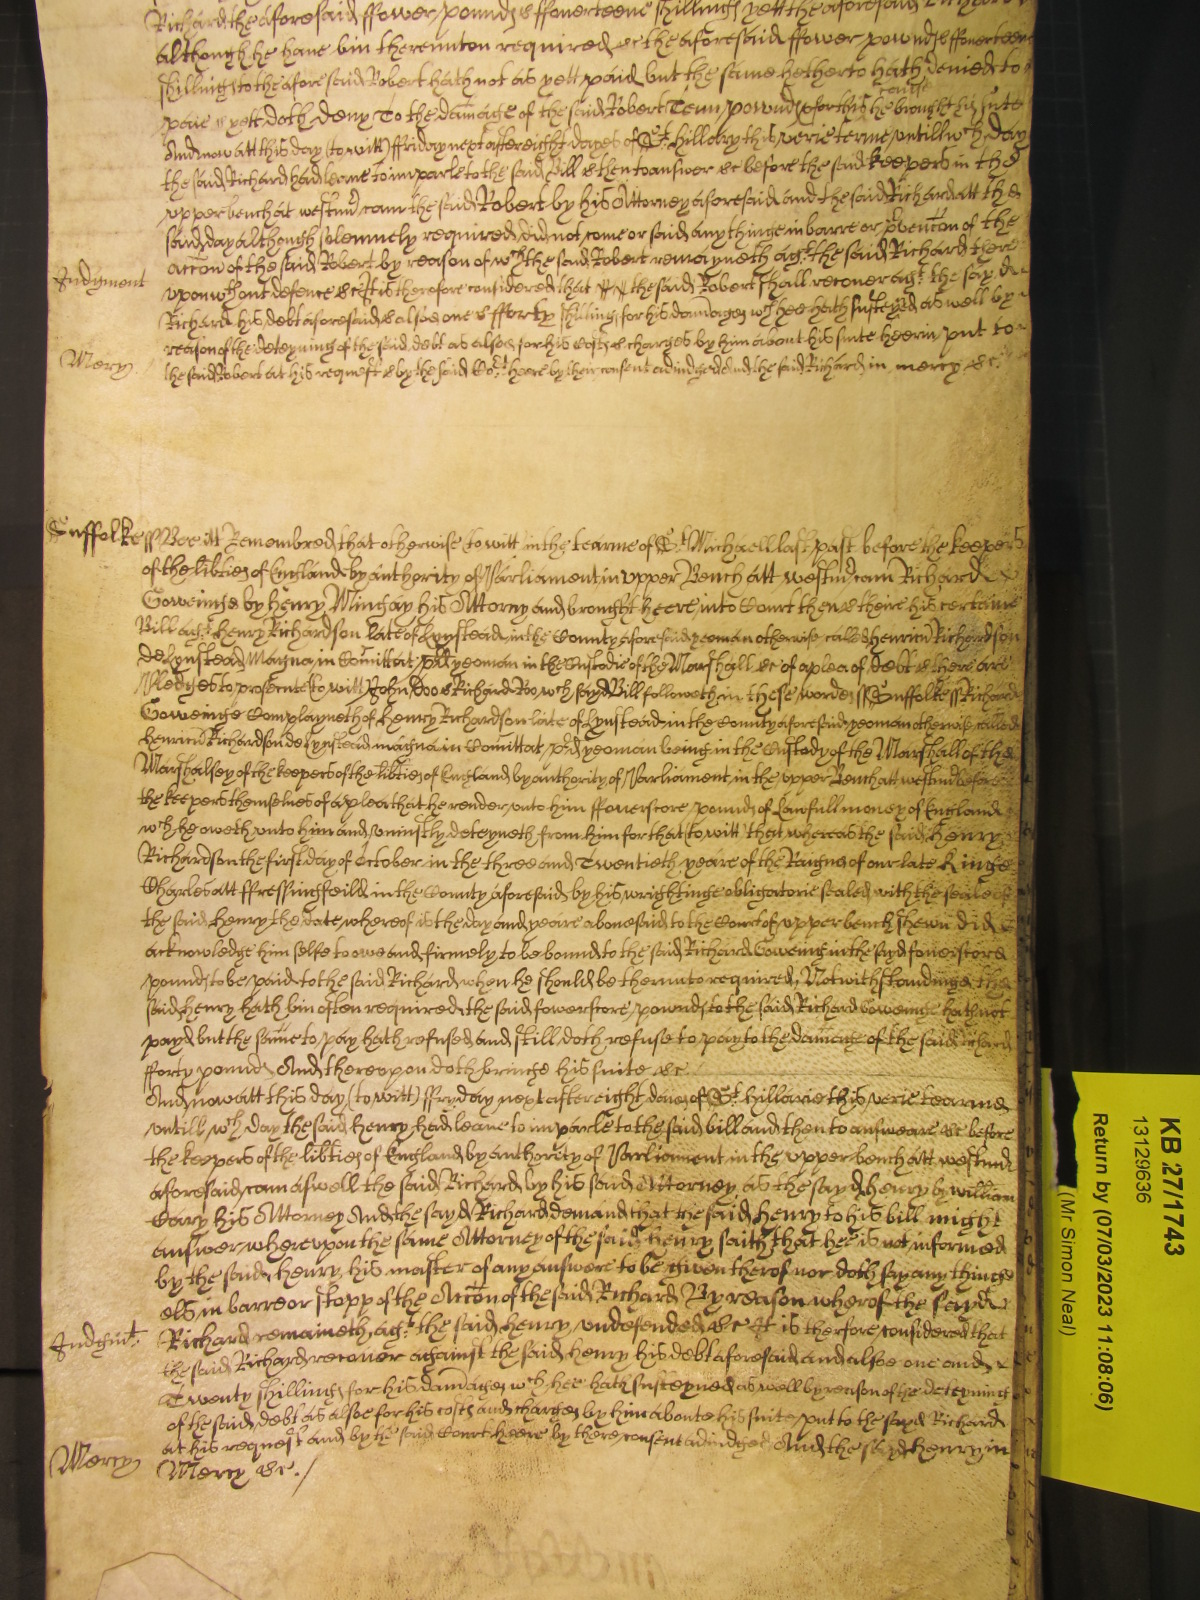 Richard the aforesaid ffower pounds & ffowerteene shillings yett the aforesaid Richard
although he have bin thereunton required &c the aforesaid ffower pownds & ffowerteene
shillings to the aforesaid Robert hath not as yett paid but the same hetherto hath denied to
paie & yett doth deny To the damage of the said Robert Tenn pownds & for this cause he brought his suite
And now att this day (to witt) ffriday next after eight dayes of St. Hillary this verie terme untill wch day
the said Richard had leave to imparle to the said Bill & then to answer &c before the said keepers in the
upper bench at westmr cam the said Robert by his Attorney aforesaid and the said Richard att the
said day although solemnely required did not come or said any thinge in barre or prvencon of the
accon of the said Robert by reason of wch the said Robert remayneth agt. the said Richard there
Judgment
uppon wthout defence &c It is therefore considered that the said Robert shall recover agt. the said
Richard his debt aforesaid & alsoe one & fforty shillings for his damages wch hee hath susteyned as well by
reason of the deteyning of the said debt as alsoe for his costs & charges by him about his suite heerin put to
Mercy
the said Robert at his request & by the said Cort heere by their consent adiudged And the said Richard in mercy &c.
Suffolke ss Bee itt Remembred that otherwise to witt in the tearme of St. Michaell last past before the keepers
of the libties of England by authority of Parliament in upper Bench att westmr cam Richard
Goweinge by Henry Mingay his Attorney and brought heere into Court then & theire his certaine
Bill agt. Henry Richardson late of Lynstead in the County aforesaid yeoman otherwise called Henricu Richardson
de Lynstead Magna in Comittat pd yeoman in the Custodie of the Marshall &c of a plea of debt & there are
Pledges to prosecute to witt John Doo & Richard Roo wch sayd Bill followeth in these wordes ss Suffolke ss Richard
Goweinge Complayneth of Henry Richardson late of Lynstead in the County aforesaid yeoman otherwise called
Henricu Richardson de Lynstead magna in Comittat prd yeoman being in the Custody of the Marshall of the
Marshalsey of the keepers of the libties of England by authority of Parliament in the upper Bench att westmr before
the keepers themselves of a plea that he render unto him ffowerscore pounds of Lawfull money of England
wch he oweth unto him and uniustly deteyneth from him for that (to witt) that whereas the said Henry
Richardson the first day of October in the three and Twentieth yeare of the Raigne of our late Kinge
Charles att ffressingfeild in the County aforesaid by his wrightinge obligatorie sealed with the seale of
the said Henry the date whereof is the day and yeare abovesaid to the Court of upper bench shewn did
acknowledge him selfe to owe and firmely to be bound to the said Richard Goweing in the sayd fowerscore
pounds to be paid to the said Richard when he should be therunto required Notwithstandinge the
said Henry hath bin often required the said fowerscore pounds to the said Richard Goweinge hath not
payd but the same to pay hath refused and still doth refuse to pay to the damage of the said Richard
fforty pounds And thereupon doth bringe his suite &c
And now att this day (to witt) ffryday next after eight daies of St. Hillarie this verie tearme
untill wch day the said Henry had leave to imparle to the said bill and then to answeare &c before
the keepers of the libties of England by authority of Parliament in the upper bench att westmr
aforesaid cam aswell the said Richard by his said Attorney as the sayd Henry by william
Cary his Attorney And the sayd Richard demand that the said Henry to his bill might
answer whereupon the same Attorney of the said Henry saith that hee is not informed
by the said Henry his master of any answere to be given therof nor doth say any thinge
els in barre or stopp of the Accon of the said Richard By reason wherof the sayd
Judgmt.
Richard remaineth agt. the said Henry undefended &c It is therfore considered that
the said Richard recover against the said Henry his debt aforesaid and alsoe one and
Twenty shillings for his damages wch hee hath susteyned as well by reason of the deteyning
of the said debt as alsoe for his costs and charges by him about his suite put to the sayd Richard
at his request and by the said Court heere by there consent adiudged And the sayd Henry in
Mercy
Mercy &c.
KB 27/1743
13129636
Return by (07/03/2023 11:08:06)
(Mr Simon Neal)